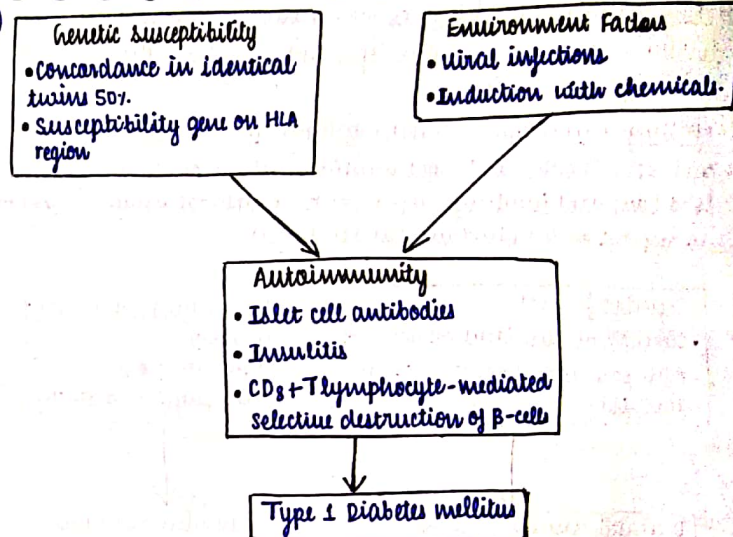 Genetic susceptibility
• Concordance in identical
twins 50%.
• Susceptibility gene on HLA
region
Environment Factors
• Viral infections
• Induction with chemicals.
Autoimmunity
• Islet cell antibodies
• Insulitis
• CD8+T lymphocyte-mediated
selective destruction of β-cells
Type 1 Diabetes mellitus